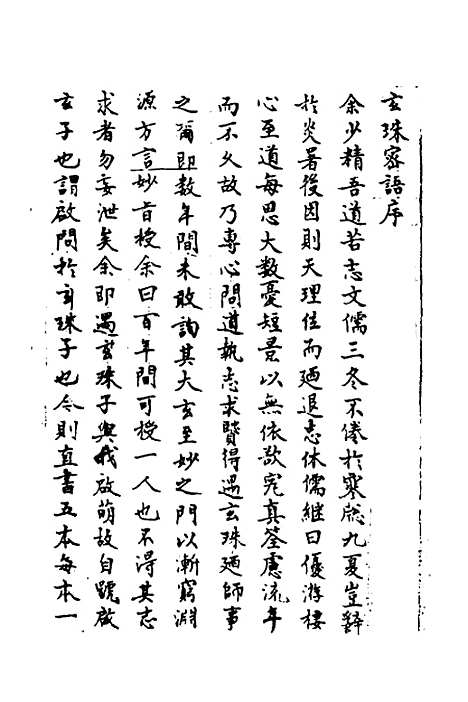 玄珠密語序
余少精吾道苦志文儒三冬不倦於寒窓九夏豈辭
於炎暑後因則天理位而廼退志休儒継日優游棲
心至道每思大数憂短景以無依欲究真筌慮流年
而不久故乃專心問道執志求賢得遇玄珠廼師事
之爾即数年間未敢詢其大玄至妙之門以漸窮淵
源方言妙旨授余曰百年間可授一人也不得其志
求者勿妄泄矣余即遇玄珠子與我啟萌故自號啟
玄子也謂啟問於玄珠子也今則直書五本每本一